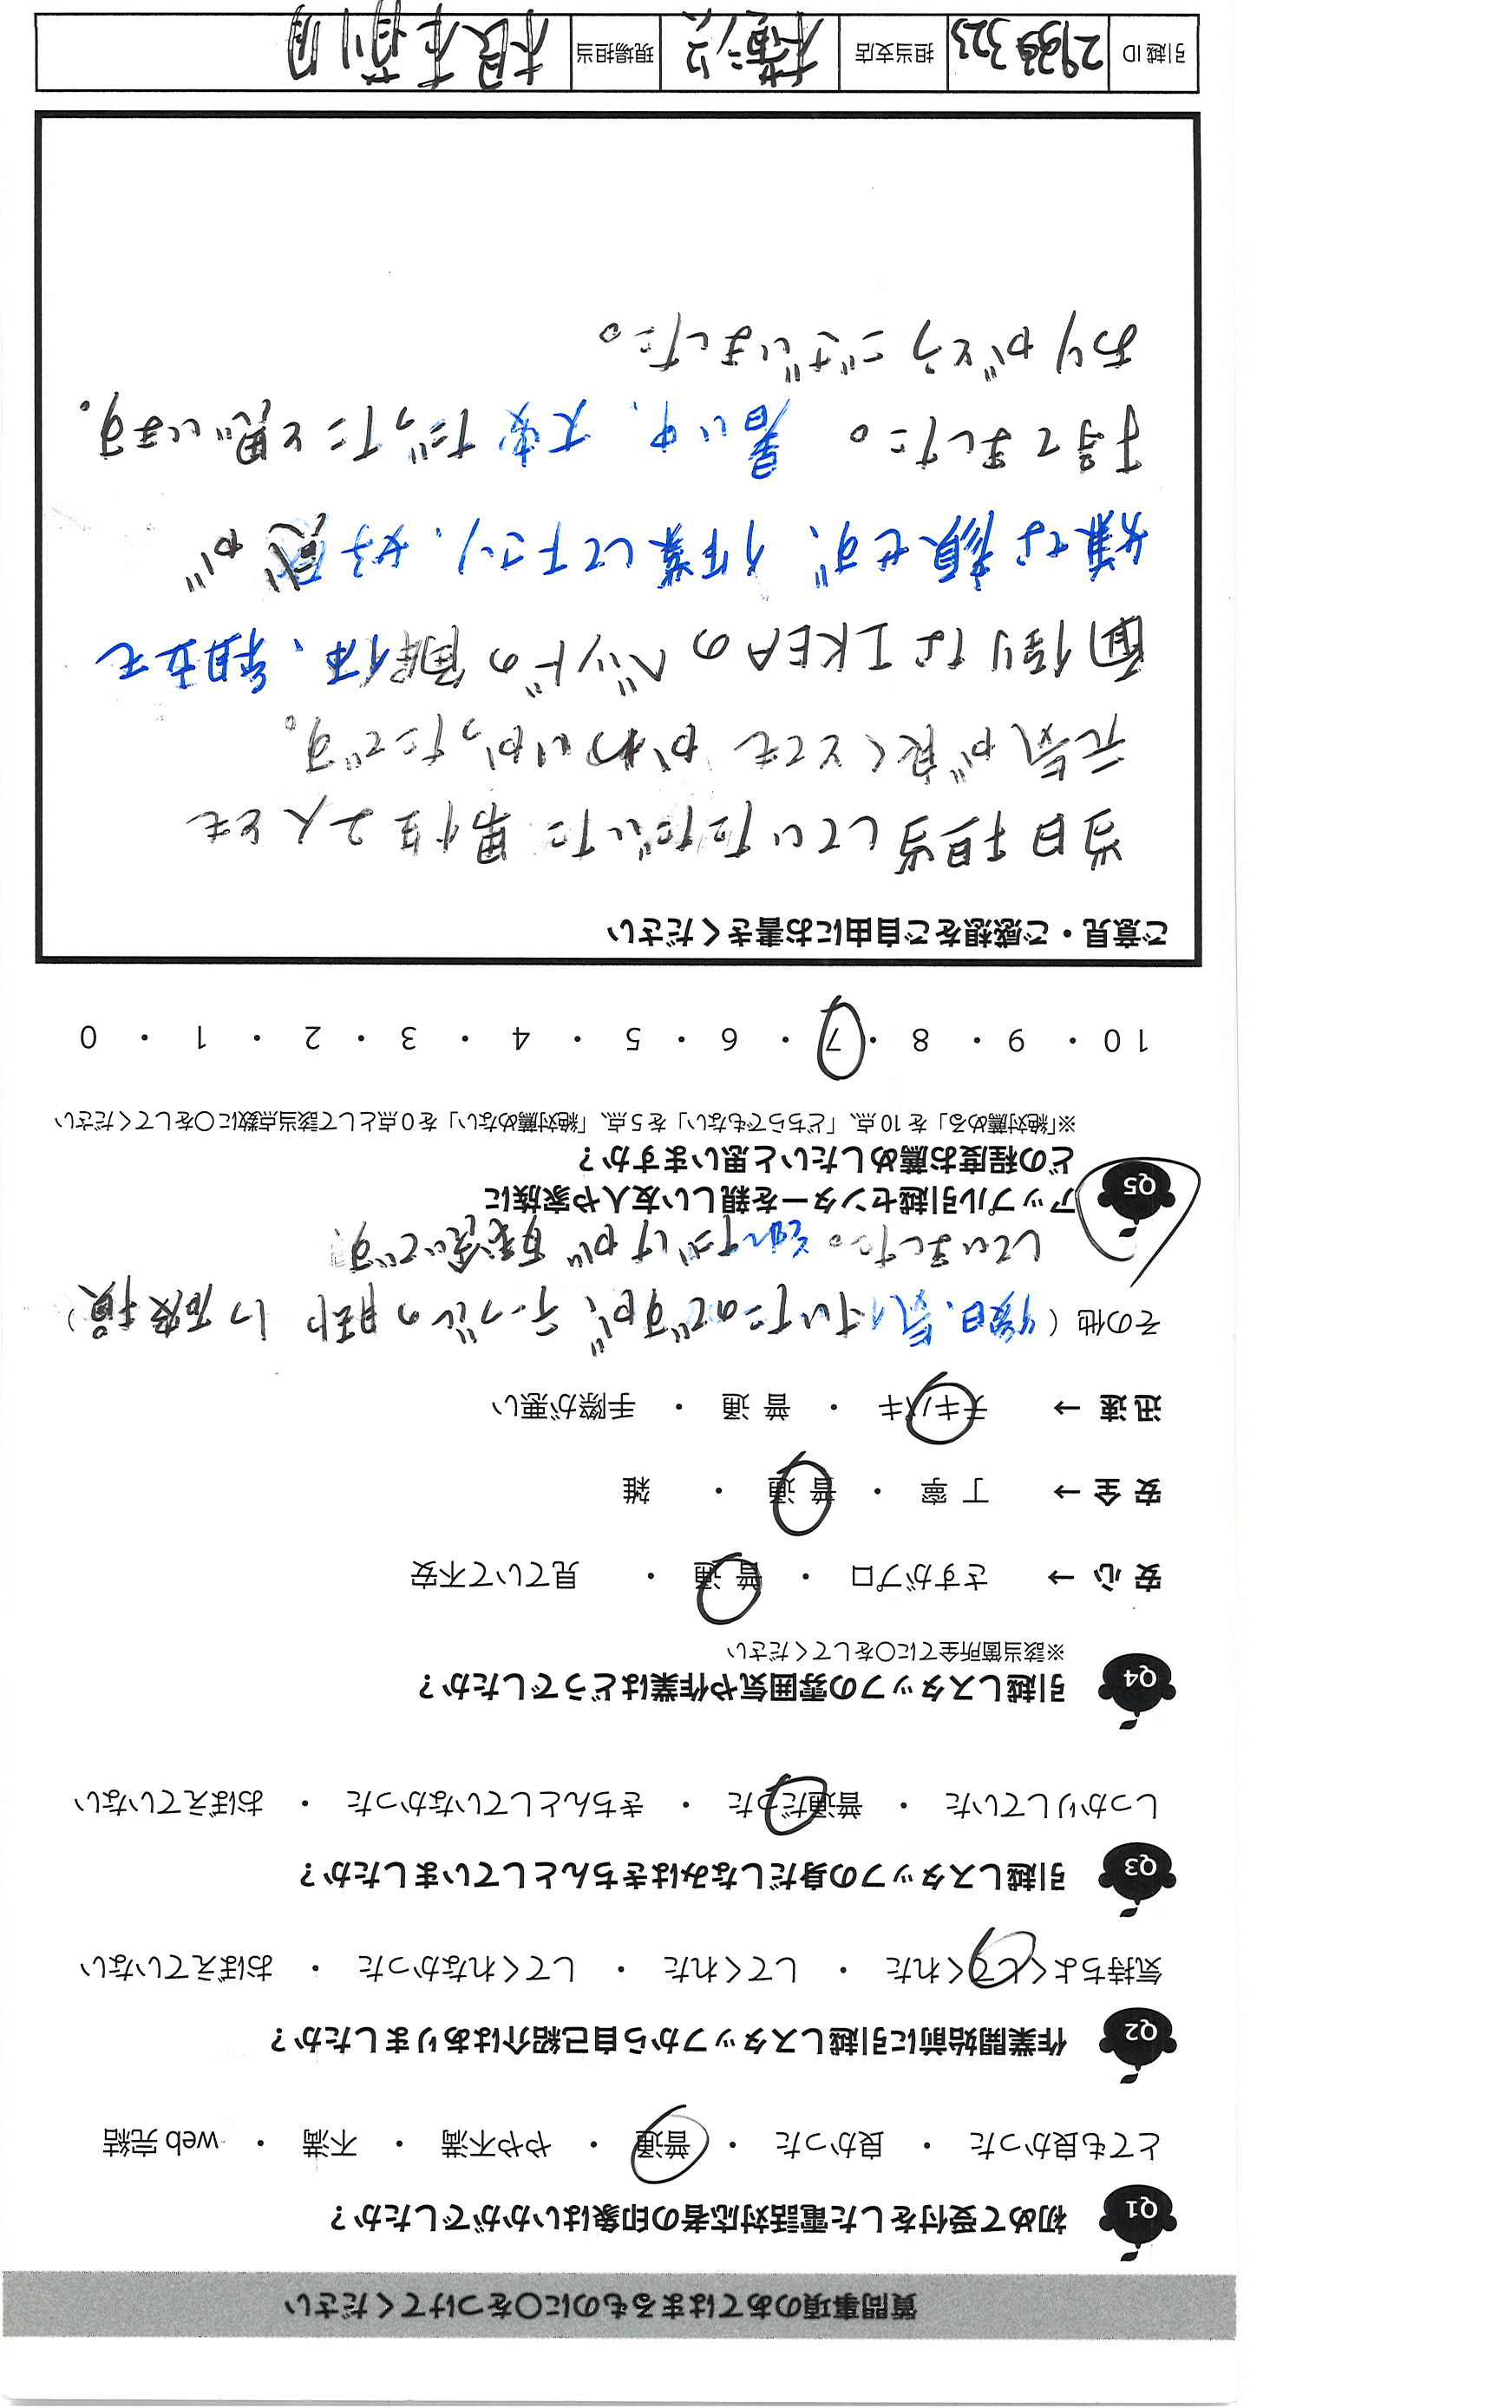 質問事項のあてはまるものに○をつけてください
Q1 初めて受付をした電話対応者の印象はいかがでしたか?
とても良かった ・ 良かった ・ 普通 ・ やや不満 ・ 不満 ・ web 完結
Q2 作業開始前に引越しスタッフから自己紹介はありましたか?
気持ちよくしてくれた ・ してくれた ・ してくれなかった ・ おぼえていない
Q3 引越しスタッフの身だしなみはきちんとしていましたか?
しっかりしていた ・ 普通だった ・ きちんとしていなかった ・ おぼえていない
Q4 引越しスタッフの雰囲気や作業はどうでしたか?
※該当箇所全てに○をしてください
安心 → さすがプロ ・ 普通 ・ 見ていて不安
安全 → 丁寧 ・ 普通 ・ 雑
迅速 → テキパキ ・ 普通 ・ 手際が悪い
その他 ( 後日、気付いたのですが、テーブルの脚 1つ破損)
していました。それだけが残念です。
Q5 アップル引越センターを親しい友人や家族に
どの程度お薦めしたいと思いますか?
※「絶対薦める」を 10 点、「どちらでもない」を 5 点、「絶対薦めない」を 0 点として該当点数に○をしてください
10 ・ 9 ・ 8 ・ 7 ・ 6 ・ 5 ・ 4 ・ 3 ・ 2 ・ 1 ・ 0
ご意見・ご感想をご自由にお書きください
当日担当していただいた男性2人とも
元気が良くとてもかわいかったです。
面倒なIKEAのベッドの解体、組立も
嫌な顔せず、作業して下さり、好感が
持てました。 暑い中、大変だったと思います。
ありがとうございました。
引越 ID 担当支店 横浜 現場担当